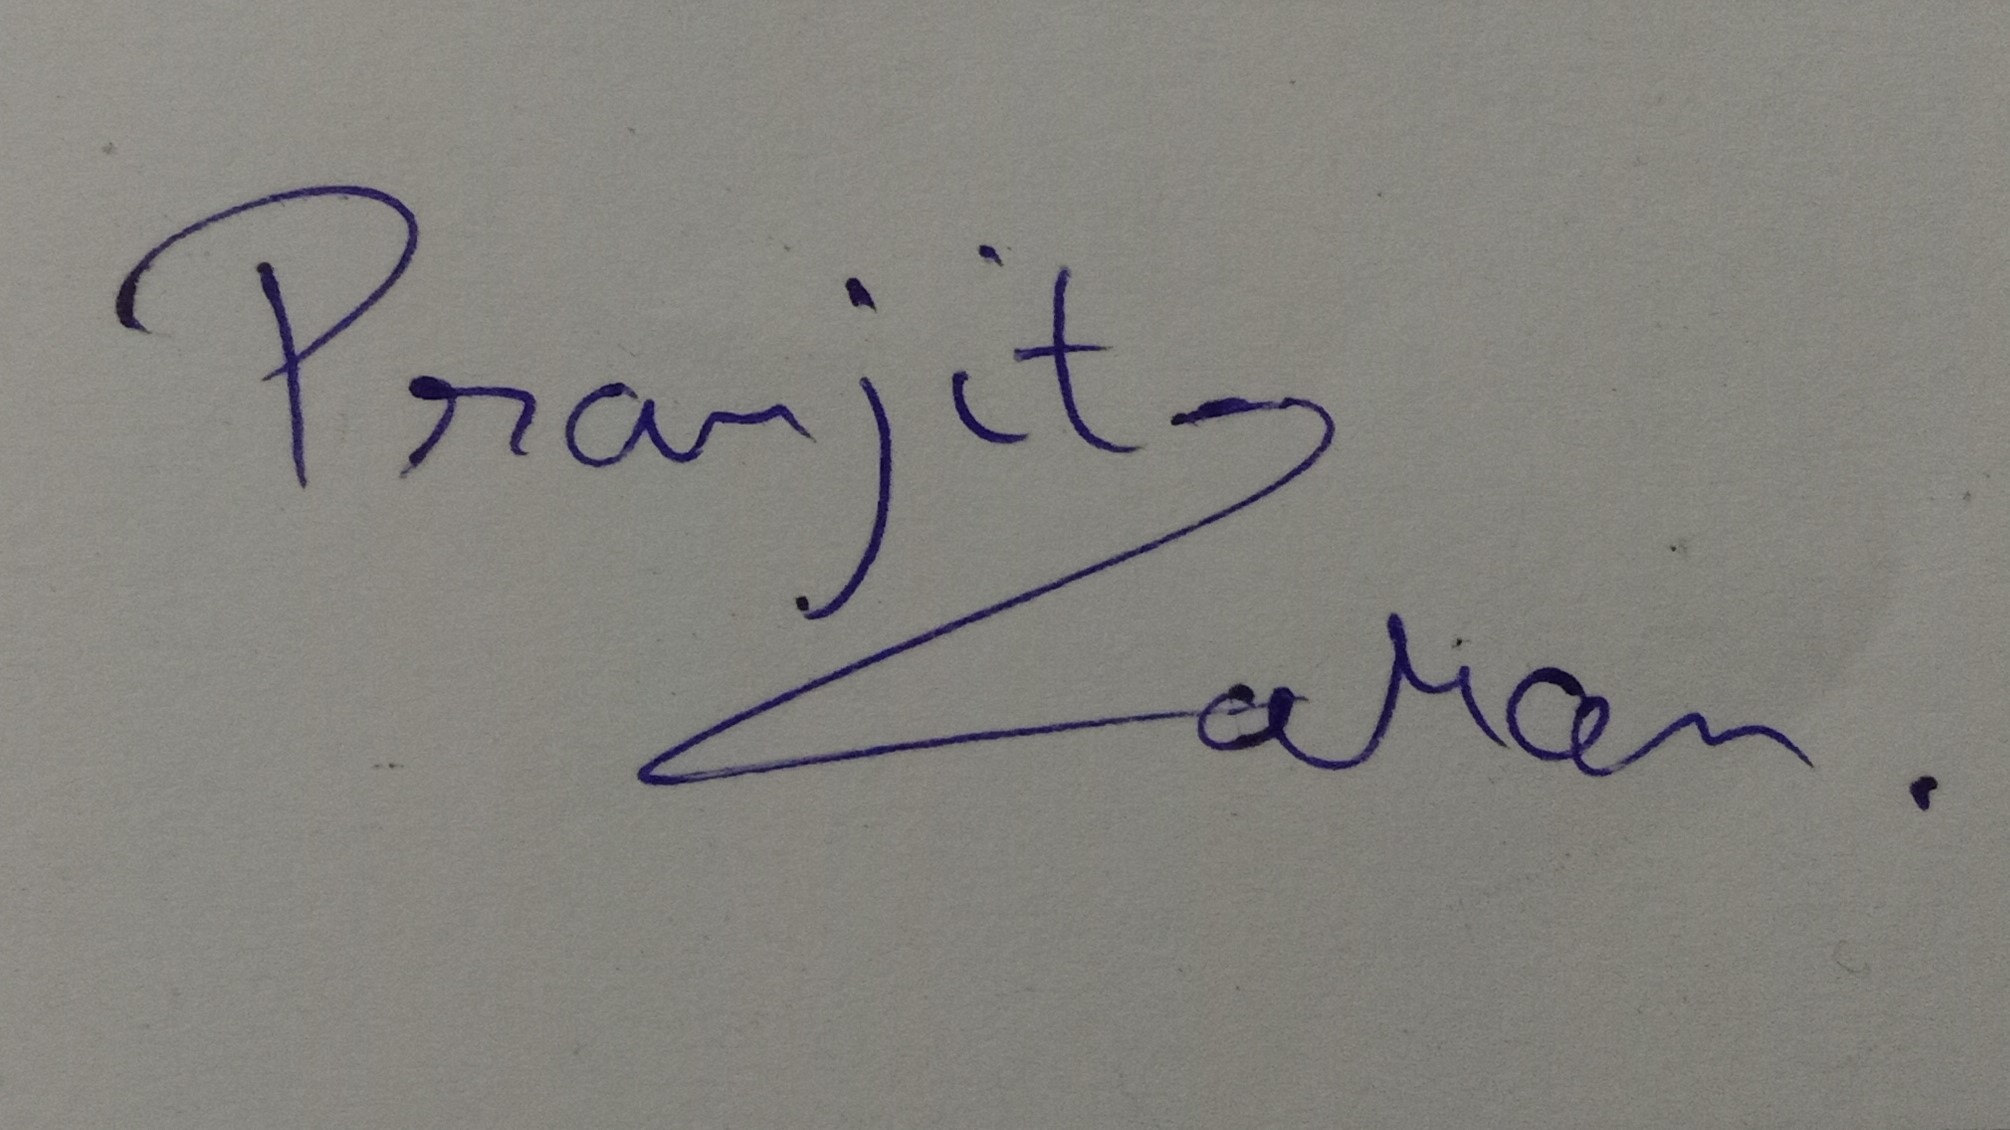 Pranjit
Zaran.